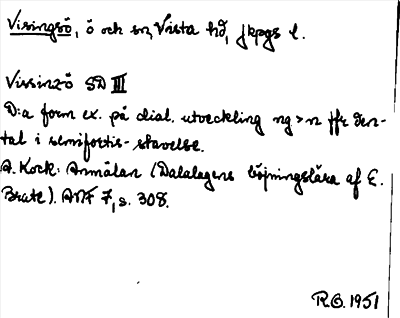 Visingsö, ö och sn, Vista hd, Jkpgs l.
Vissinz-ö SD III
D:a form ex. på dial. utveckling ng > n ffr den-
tal i semifortis-stavelse.
A. Kock: Anmälan (Dalalagens böjningslära af E.
Brate). ANF 7, s. 308.
R.O. 1951